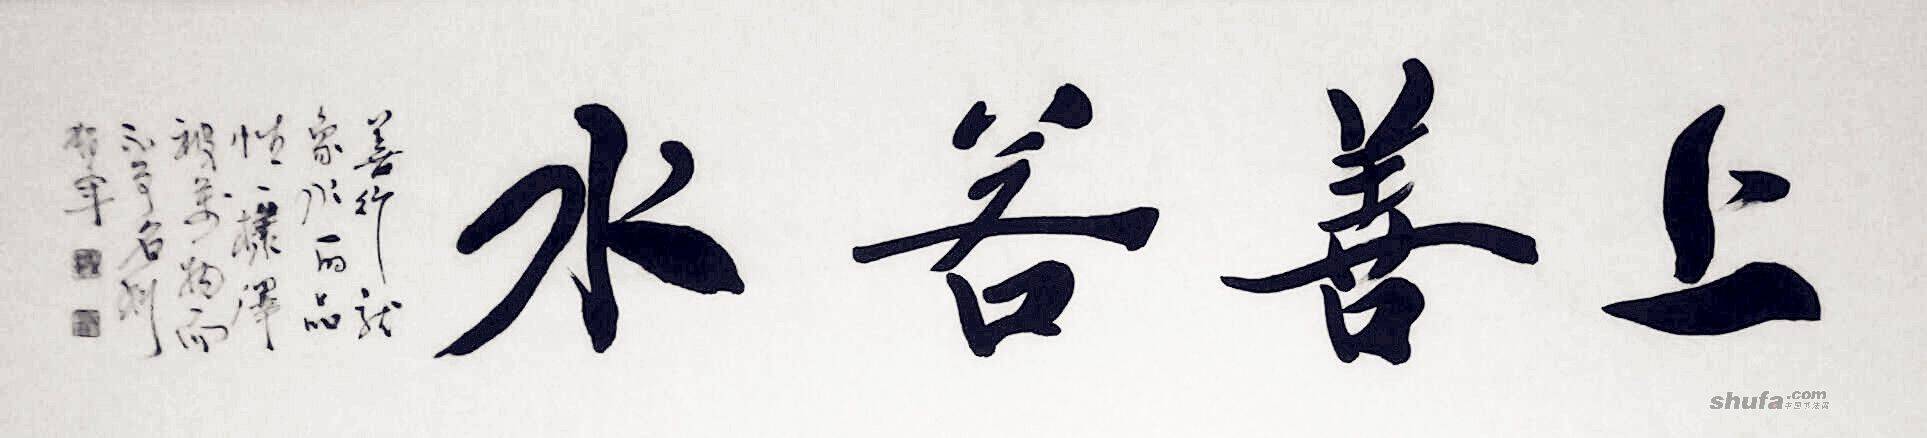 上善若水
善行就
象水的品
性一樣澤
被萬物而
不爭名利
shufa.com
中国书法网